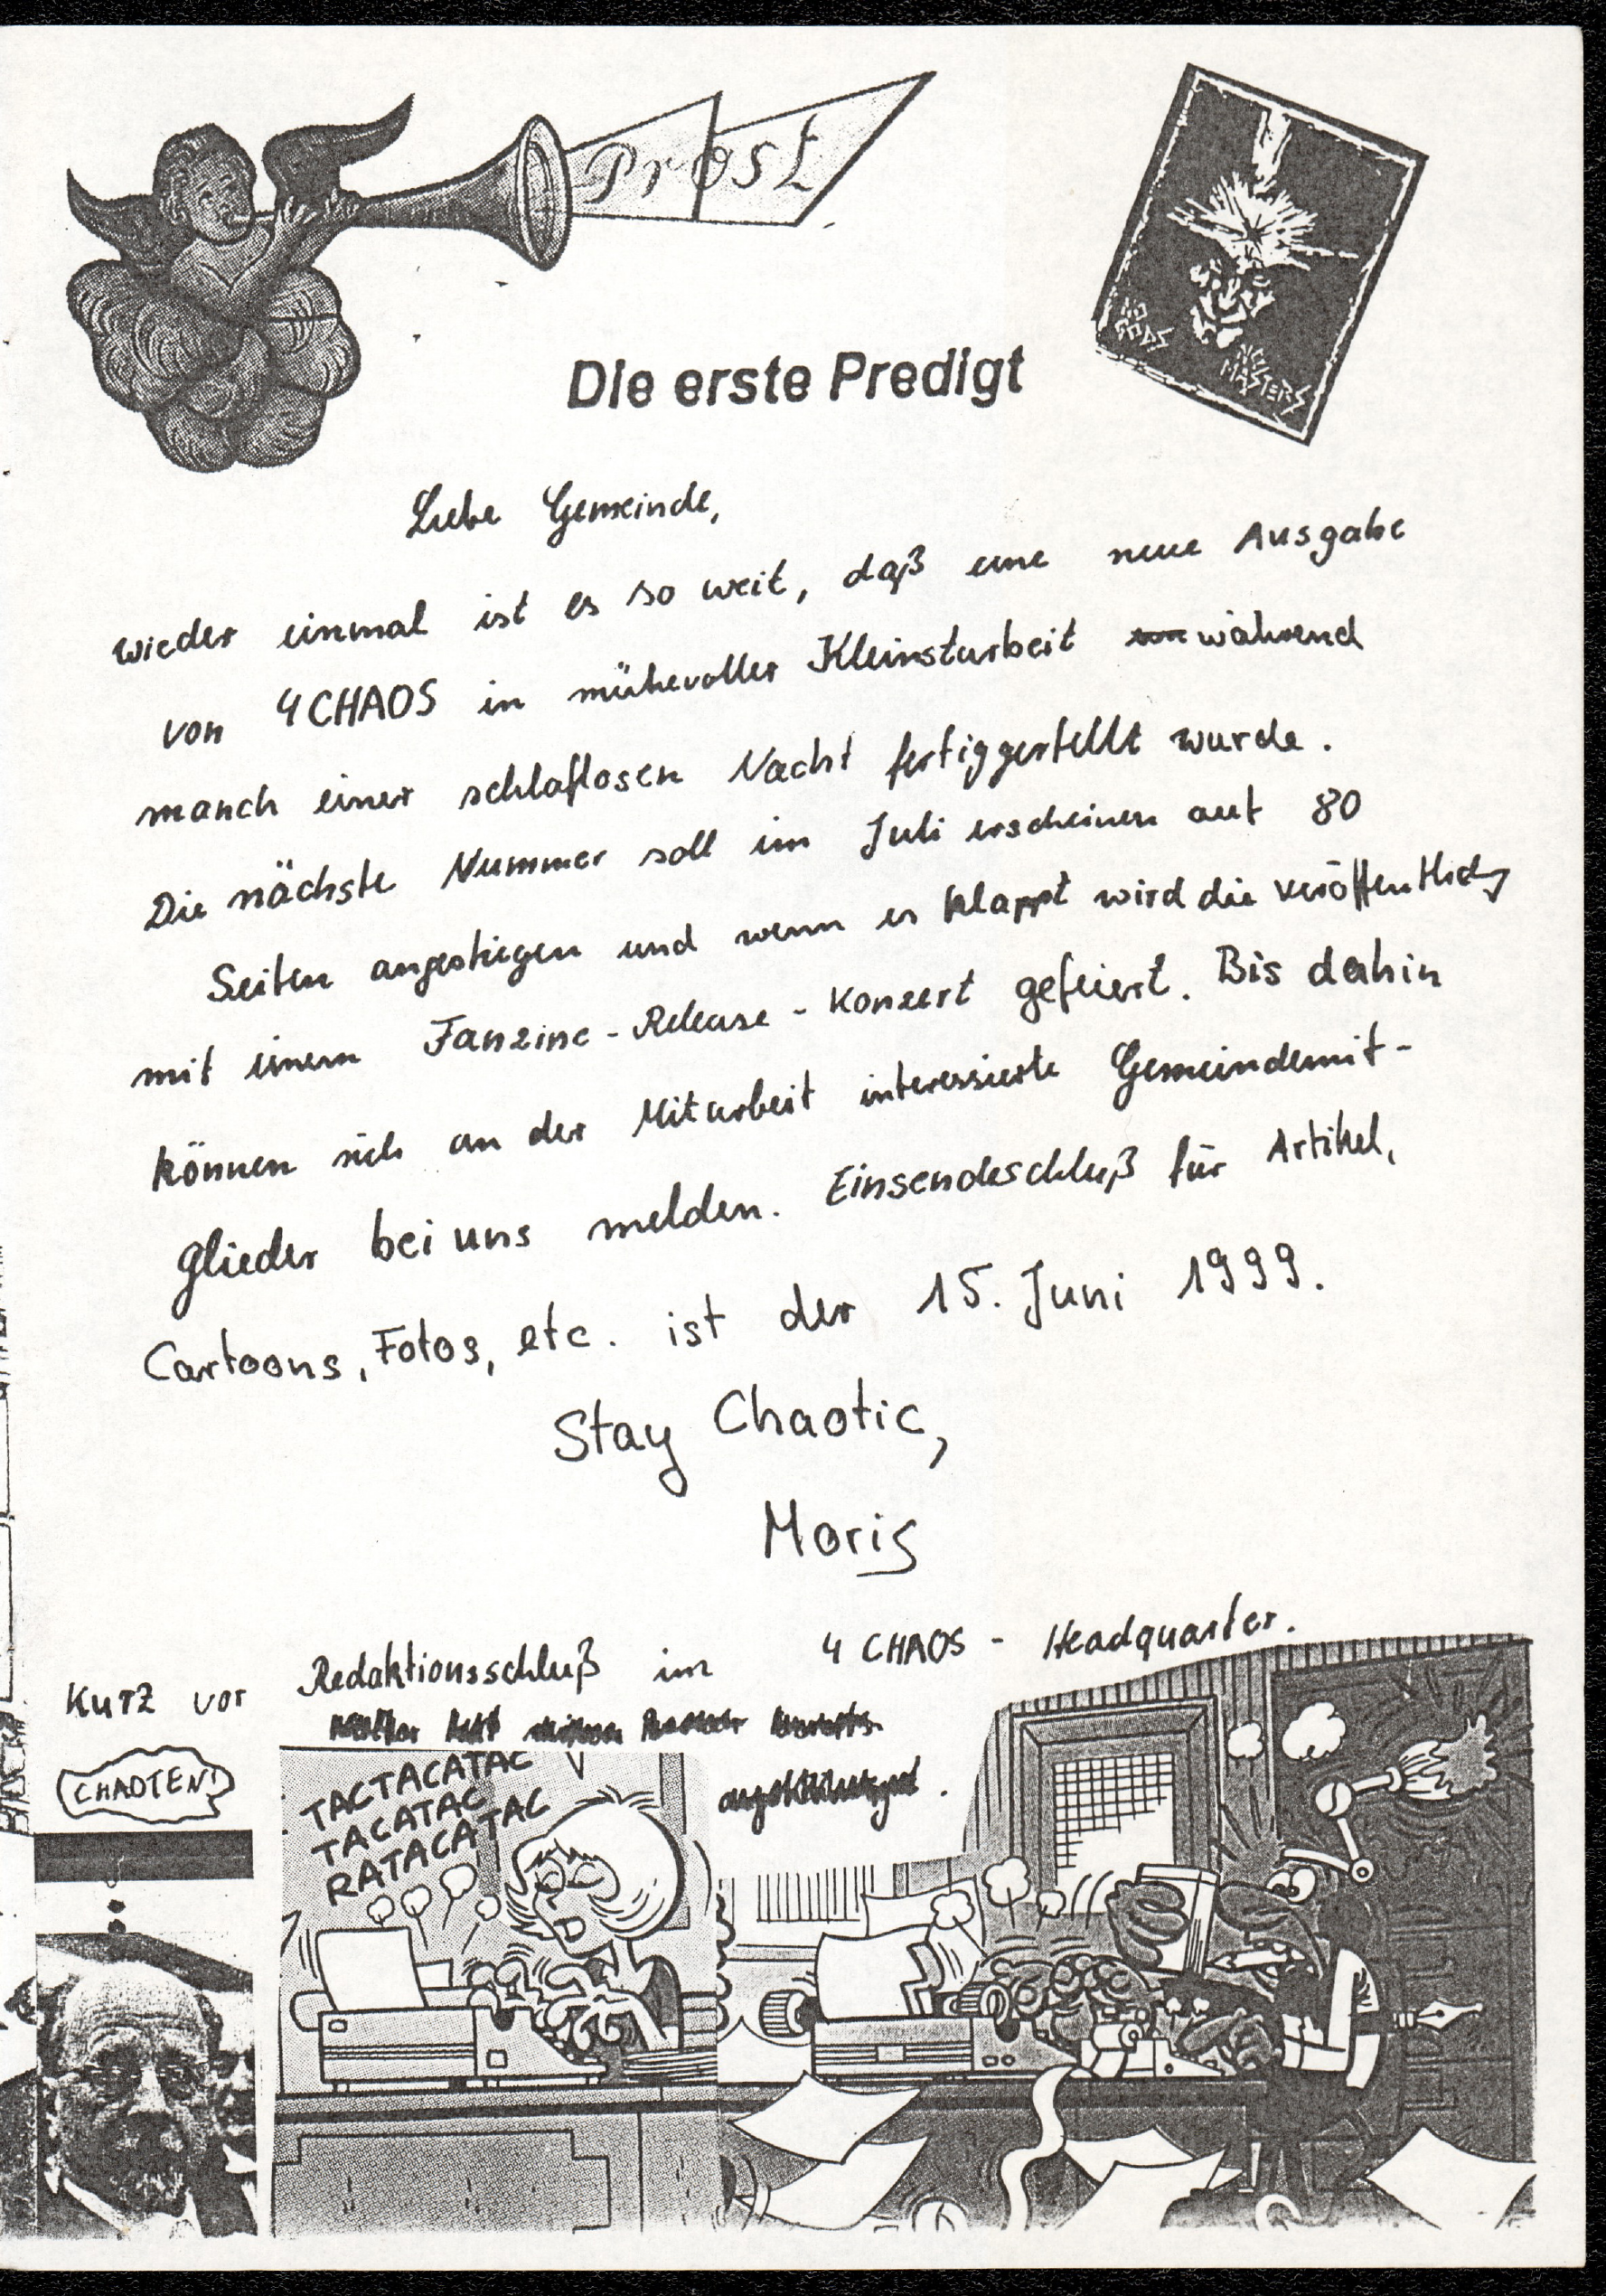 Prost
NO
GODS
NO
MASTERS
Die erste Predigt
Liebe Gemeinde,
wieder einmal ist es so weit, daß eine neue Ausgabe
von 4CHAOS in mühevoller Kleinstarbeit während
manch einer schlaflosen Nacht fertiggestellt wurde.
Die nächste Nummer soll im Juli erscheinen auf 80
Seiten angestiegen und wenn es klappt wird die Veröffentlichg
mit einem Fanzine-Release-Konzert gefeiert. Bis dahin
können sich an der Mitarbeit interessierte Gemeindemit-
glieder bei uns melden. Einsendeschluß für Artikel,
Cartoons, Fotos, etc. ist der 15. Juni 1999.
Stay Chaotic,
Moris
Kurz vor Redaktionsschluß im 4 CHAOS - Headquarter.
CHAOTEN!
TACTACATAC
TACATAC
RATACATAC